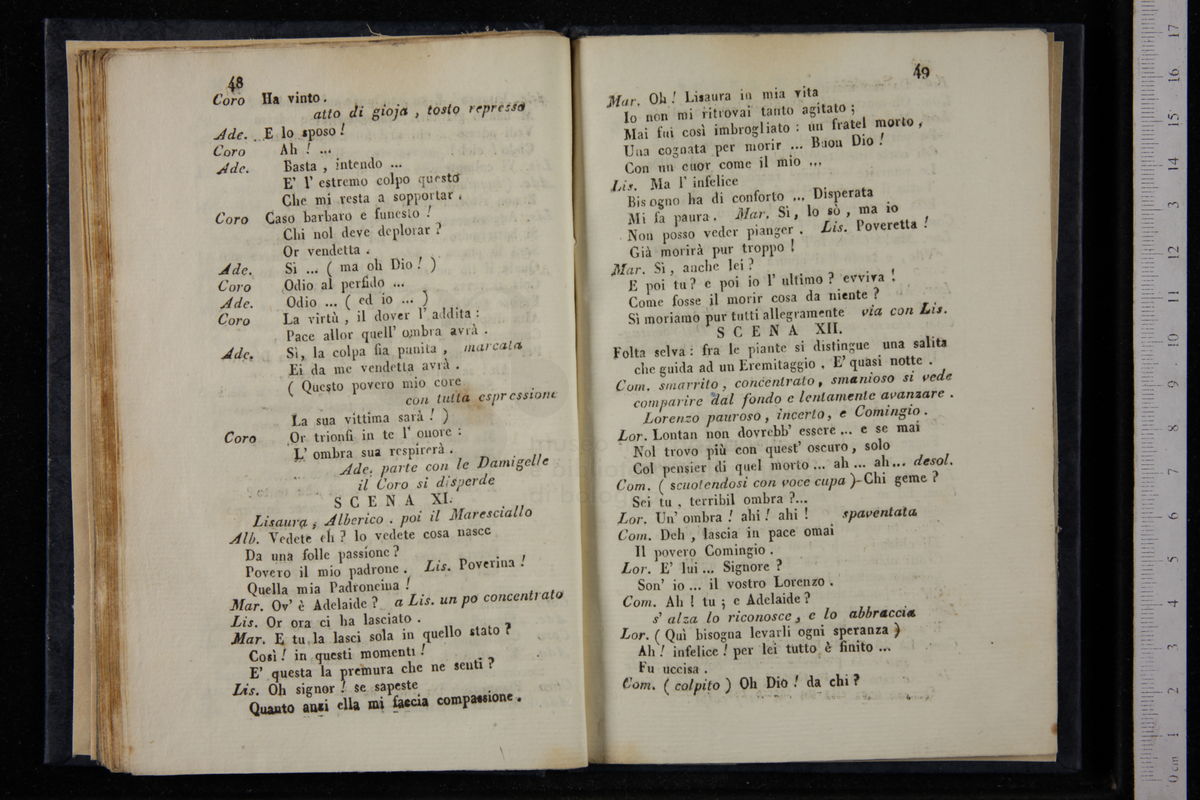 48
Coro Ha vinto.
atto di gioja , tosto represso
Ade. E lo sposo !
Coro Ah ! ...
Ade. Basta , intendo ...
E' l' estremo colpo questo
Che mi resta a sopportar .
Coro Caso barbaro e funesto !
Chi nol deve deplorar ?
Or vendetta .
Ade. Si ... ( ma oh Dio ! )
Coro Odio al perfido ...
Ade. Odio ... ( ed io ... )
Coro La virtù , il dover l' addita :
Pace allor quell' ombra avrà .
Ade. Sì, la colpa fia punita , marcata
Ei da me vendetta avrà .
( Questo povero mio core
con tutta espressione
La sua vittima sarà ! )
Coro Or trionfi in te l' onore :
L' ombra sua respirerà .
Ade. parte con le Damigelle
il Coro si disperde
SCENA XI.
Lisaura , Alberico . poi il Maresciallo
Alb. Vedete eh ? lo vedete cosa nasce
Da una folle passione ?
Povero il mio padrone . Lis. Poverina !
Quella mia Padroncina !
Mar. Ov' è Adelaide ? a Lis. un po concentrato
Lis. Or ora ci ha lasciato .
Mar. E tu la lasci sola in quello stato ?
Così ! in questi momenti !
E' questa la premura che ne senti ?
Lis. Oh signor ! se sapeste
Quanto anzi ella mi faccia compassione .
49
Mar. Oh ! Lisaura in mia vita
Io non mi ritrovai tanto agitato ;
Mai fui così imbrogliato : un fratel morto ,
Una cognata per morir ... Buon Dio !
Con un cuor come il mio ...
Lis. Ma l' infelice
Bisogno ha di conforto ... Disperata
Mi fa paura . Mar. Si , lo sò , ma io
Non posso veder pianger . Lis. Poveretta !
Già morirà pur troppo !
Mar. Sì , anche lei ?
E poi tu ? e poi io l' ultimo ? evviva !
Come fosse il morir cosa da niente ?
Sì moriamo pur tutti allegramente via con Lis.
SCENA XII.
Folta selva : fra le piante si distingue una salita
che guida ad un Eremitaggio . E' quasi notte .
Com. smarrito , concentrato , smanioso si vede
comparire dal fondo e lentamente avanzare .
Lorenzo pauroso , incerto , e Comingio .
Lor. Lontan non dovrebb' essere ... e se mai
Nol trovo più con quest' oscuro , solo
Col pensier di quel morto ... ah ... ah ... desol.
Com. ( scuotendosi con voce cupa )-Chi geme ?
Sei tu , terribil ombra ?...
Lor. Un' ombra ! ahi ! ahi ! spaventata
Com. Deh , lascia in pace omai
Il povero Comingio .
Lor. E' lui ... Signore ?
Son' io ... il vostro Lorenzo .
Com. Ah ! tu ; e Adelaide ?
s' alza lo riconosce , e lo abbraccia
Lor. ( Quì bisogna levarli ogni speranza )
Ah ! infelice ! per lei tutto è finito ...
Fu uccisa .
Com. ( colpito ) Oh Dio ! da chi ?